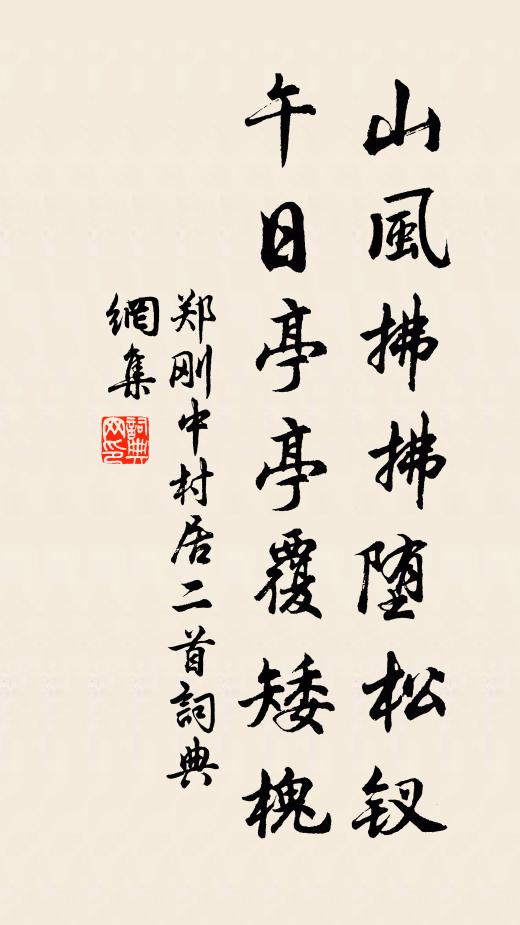 山風拂拂堕松钗
午日亭亭覆矮槐
郑刚中村居二首詞典
網集
詞典网印